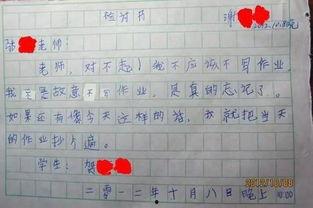 检讨书
谢
老师：
老师，对不起！我不应该不写作业，
我不是故意不写作业，是真的忘记了。
如果还有像今天这样的话，我就把当天
的作业抄遍。
学生：贺
二零一二年十月八日晚上10:00
2012/10/08